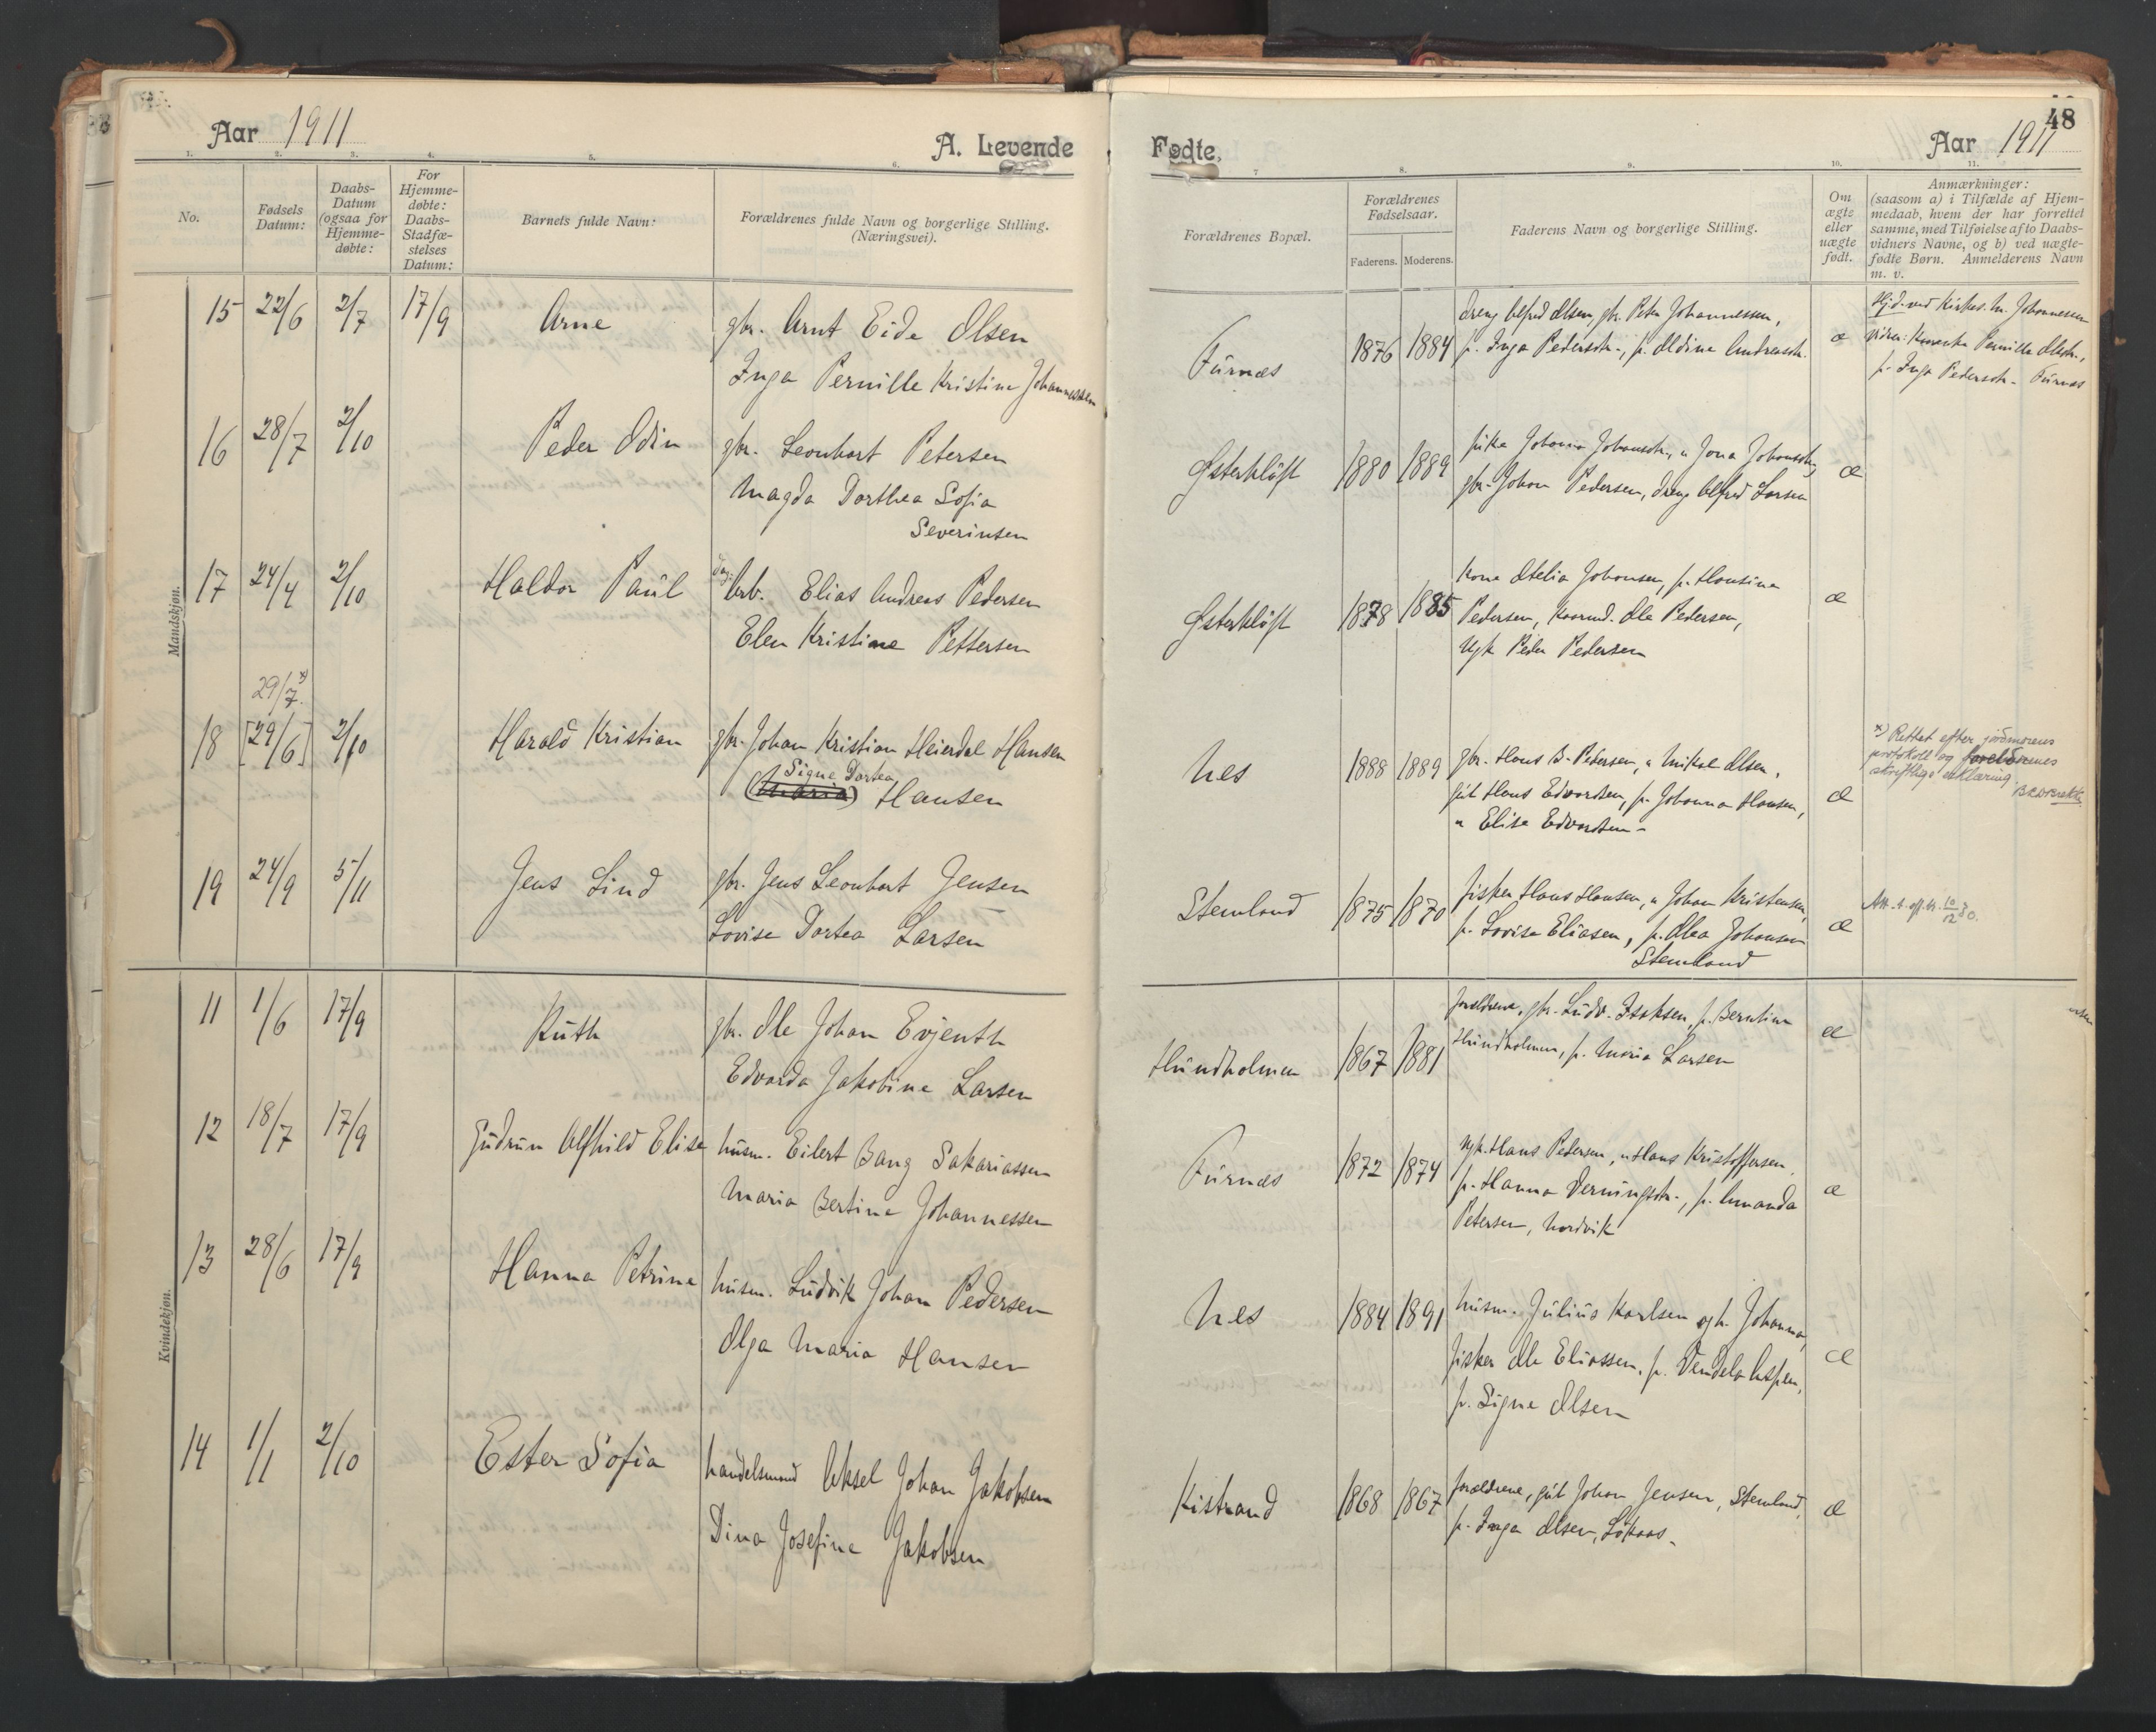 48
Aar 1911
A. Levende
Fødte.
Aar 1911
1. 2. 3. 4. 5. 6. 7 8. 9. 10. 11.
No.
Fødsels Datum:
Daabs-Datum (ogsaa for Hjemme-døbte:
For Hjemme-døbte: Daabs-Stadfæ-stelses Datum:
Barnets fulde Navn:
Forældrenes fulde Navn og borgerlige Stilling.
(Næringsvei).
Forældrenes Bopæl.
Forældrenes Fødselsaar.
Faderens. Moderens.
Faderens Navn og borgerlige Stilling.
Om ægte eller uægte født.
Anmærkninger:
(saasom a) i Tilfælde af Hjem-
medaab, hvem der har forrettet
samme, med Tilføielse af to Daabs-
vidners Navne, og b) ved uægte-
fødte Børn. Anmelderens Navn
m. v.
Mandskjøn.
15 22/6 2/7 17/9 Arne gbr. Arnt Eide Olsen
Inga Pernille Kristine Johannessen
Furnes 1876 1884
dreng Alfred Olsen, gbr. Peter Johannessen,
p. Inga Pedersdtr., p. Oldine Andreasdtr.
æ
Hjd. ved Kirkes. M. Johannessen
vidner: Pernille Olsdtr.,
p. Inga Pedersdtr. Furnes
16 28/7 2/10 Peder Odin gbr. Leonhart Petersen
Magda Dorthea Sofia
Severinsen
Østerkløft 1880 1889
pike Johanna Johansdtr., " Jona Johansdtr,
gbr. Johan Pedersen, dreng Alfred Larsen
æ
17 24/4 2/10 Haldor Paul Arb. Elias Andreas Pedersen
Elen Kristine Pettersen
Østerkløft 1878 1885
Kone Otelia Johansen, p. Hansine
Pedersen, Ole Pedersen,
Ugk Peder Pedersen
æ
29/7. x)
18 [29/6] 2/10 Harald Kristian gbr. Johan Kristian Heierdal Hansen
Signe Dortea
(Maria) Hansen
Nes 1888 1889
gbr. Hans B. Pedersen, " Mikal Olsen,
gut Hans Edvardsen, p. Johanna Hansen,
" Elise Edvardsen-
æ
x) Rettet efter jordmorens
protokoll og foreldrenes
skriftlige erklæring.
19 24/9 5/11 Jens Lind gbr. Jens Leonhart Jensen
Lovise Dortea Larsen
Stemland 1875 1870
fisker Hans Hansen, " Johan Kristensen,
p. Lovise Eliasen, p. Olea Johansen
Stemland
æ
Kvindekjøn.
11 1/6 17/9 Ruth gbr. Ole Johan Evjenth
Edvarda Jakobine Larsen
Hundholmen 1867 1881
forældrene, gbr. Ludv. Isaksen, p. Berntine
Hundholmen, p. Maria Larsen
æ
12 18/7 17/9 Gudrun Alfhild Elise husm. Eilert Bang Sakariassen
Maria Bertine Johannessen
Furnes 1872 1874
ugk. Hans Pedersen, " Hans Kristoffersen,
p. Hanna Verningsdtr., p. Amanda
Petersen, Nordvik
æ
13 28/6 17/9 Hanna Petrine husm. Ludvik Johan Pedersen
Olga Maria Hansen
Nes 1884 1891
husm. Julius Karlsen og h. Johanna,
fisker Ole Eliassen, p. Vendela Aspen,
p. Signe Olsen
æ
14 1/1 2/10 Ester Sofia handelsmand Aksel Johan Jakobsen
Dina Josefine Jakobsen
Kistrand 1868 1867
forældrene, gut Johan Jensen, Stemland,
p. Inga Olsen, Løkaas-
æ